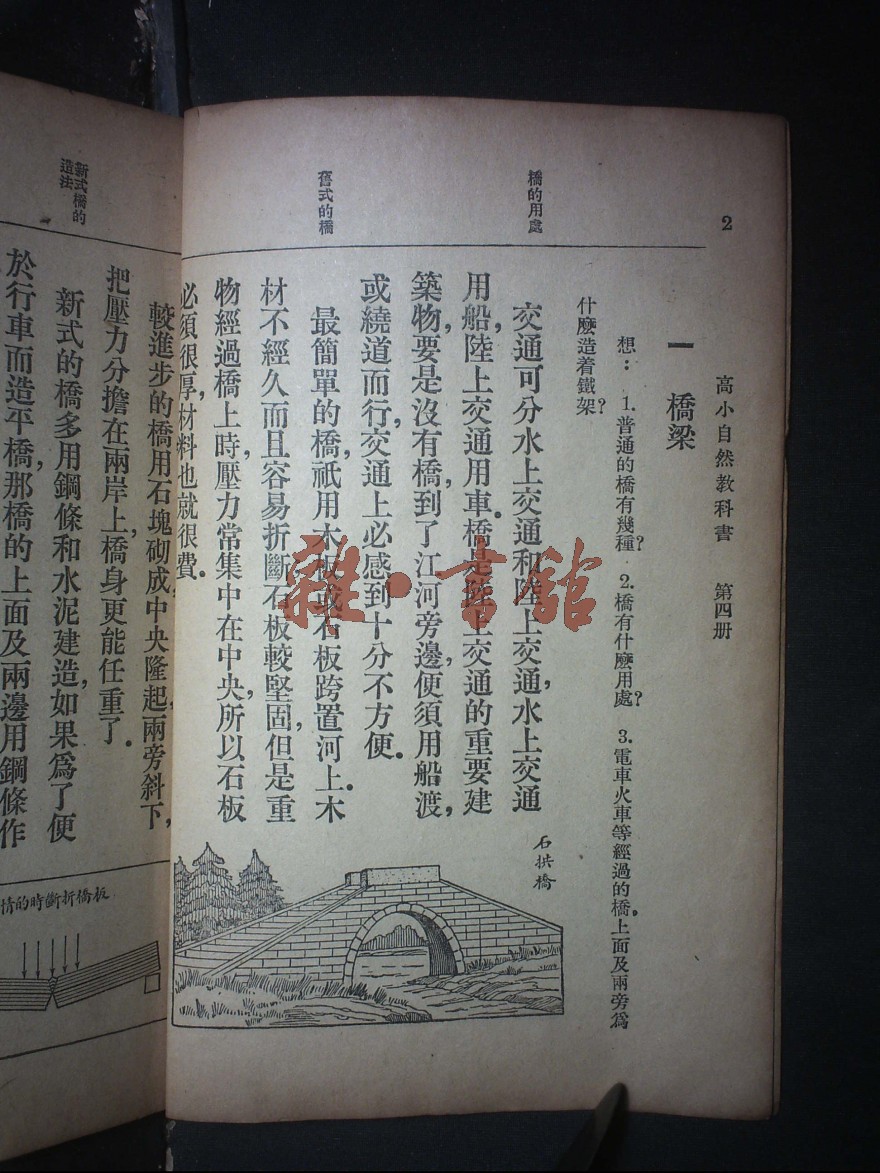 2
高小自然教科書　第四册
一　橋梁
想：　1. 普通的橋有幾種？　2. 橋有什麽用處？　3. 電車火車等經過的橋，上面及兩旁爲
什麽造着鐵架？
橋的用處
交通可分水上交通和陸上交通，水上交通
用船，陸上交通用車。橋是陸上交通的重要建
築物，要是沒有橋，到了江河旁邊，便須用船渡，
或繞道而行，交通上必感到十分不方便。
舊式的橋
最簡單的橋，祇用木板或石板跨置河上。木
材不經久而且容易折斷，石板較堅固，但是重
物經過橋上時，壓力常集中在中央，所以石板
必須很厚，材料也就很費。
石拱橋
較進步的橋用石塊砌成中央隆起，兩旁斜下，
把壓力分擔在兩岸上，橋身更能任重了。
新式橋的
造法
新式的橋多用鋼條和水泥建造，如果爲了便
於行車而造平橋，那橋的上面及兩邊用鋼條作
板橋折斷時的情
雜·書館